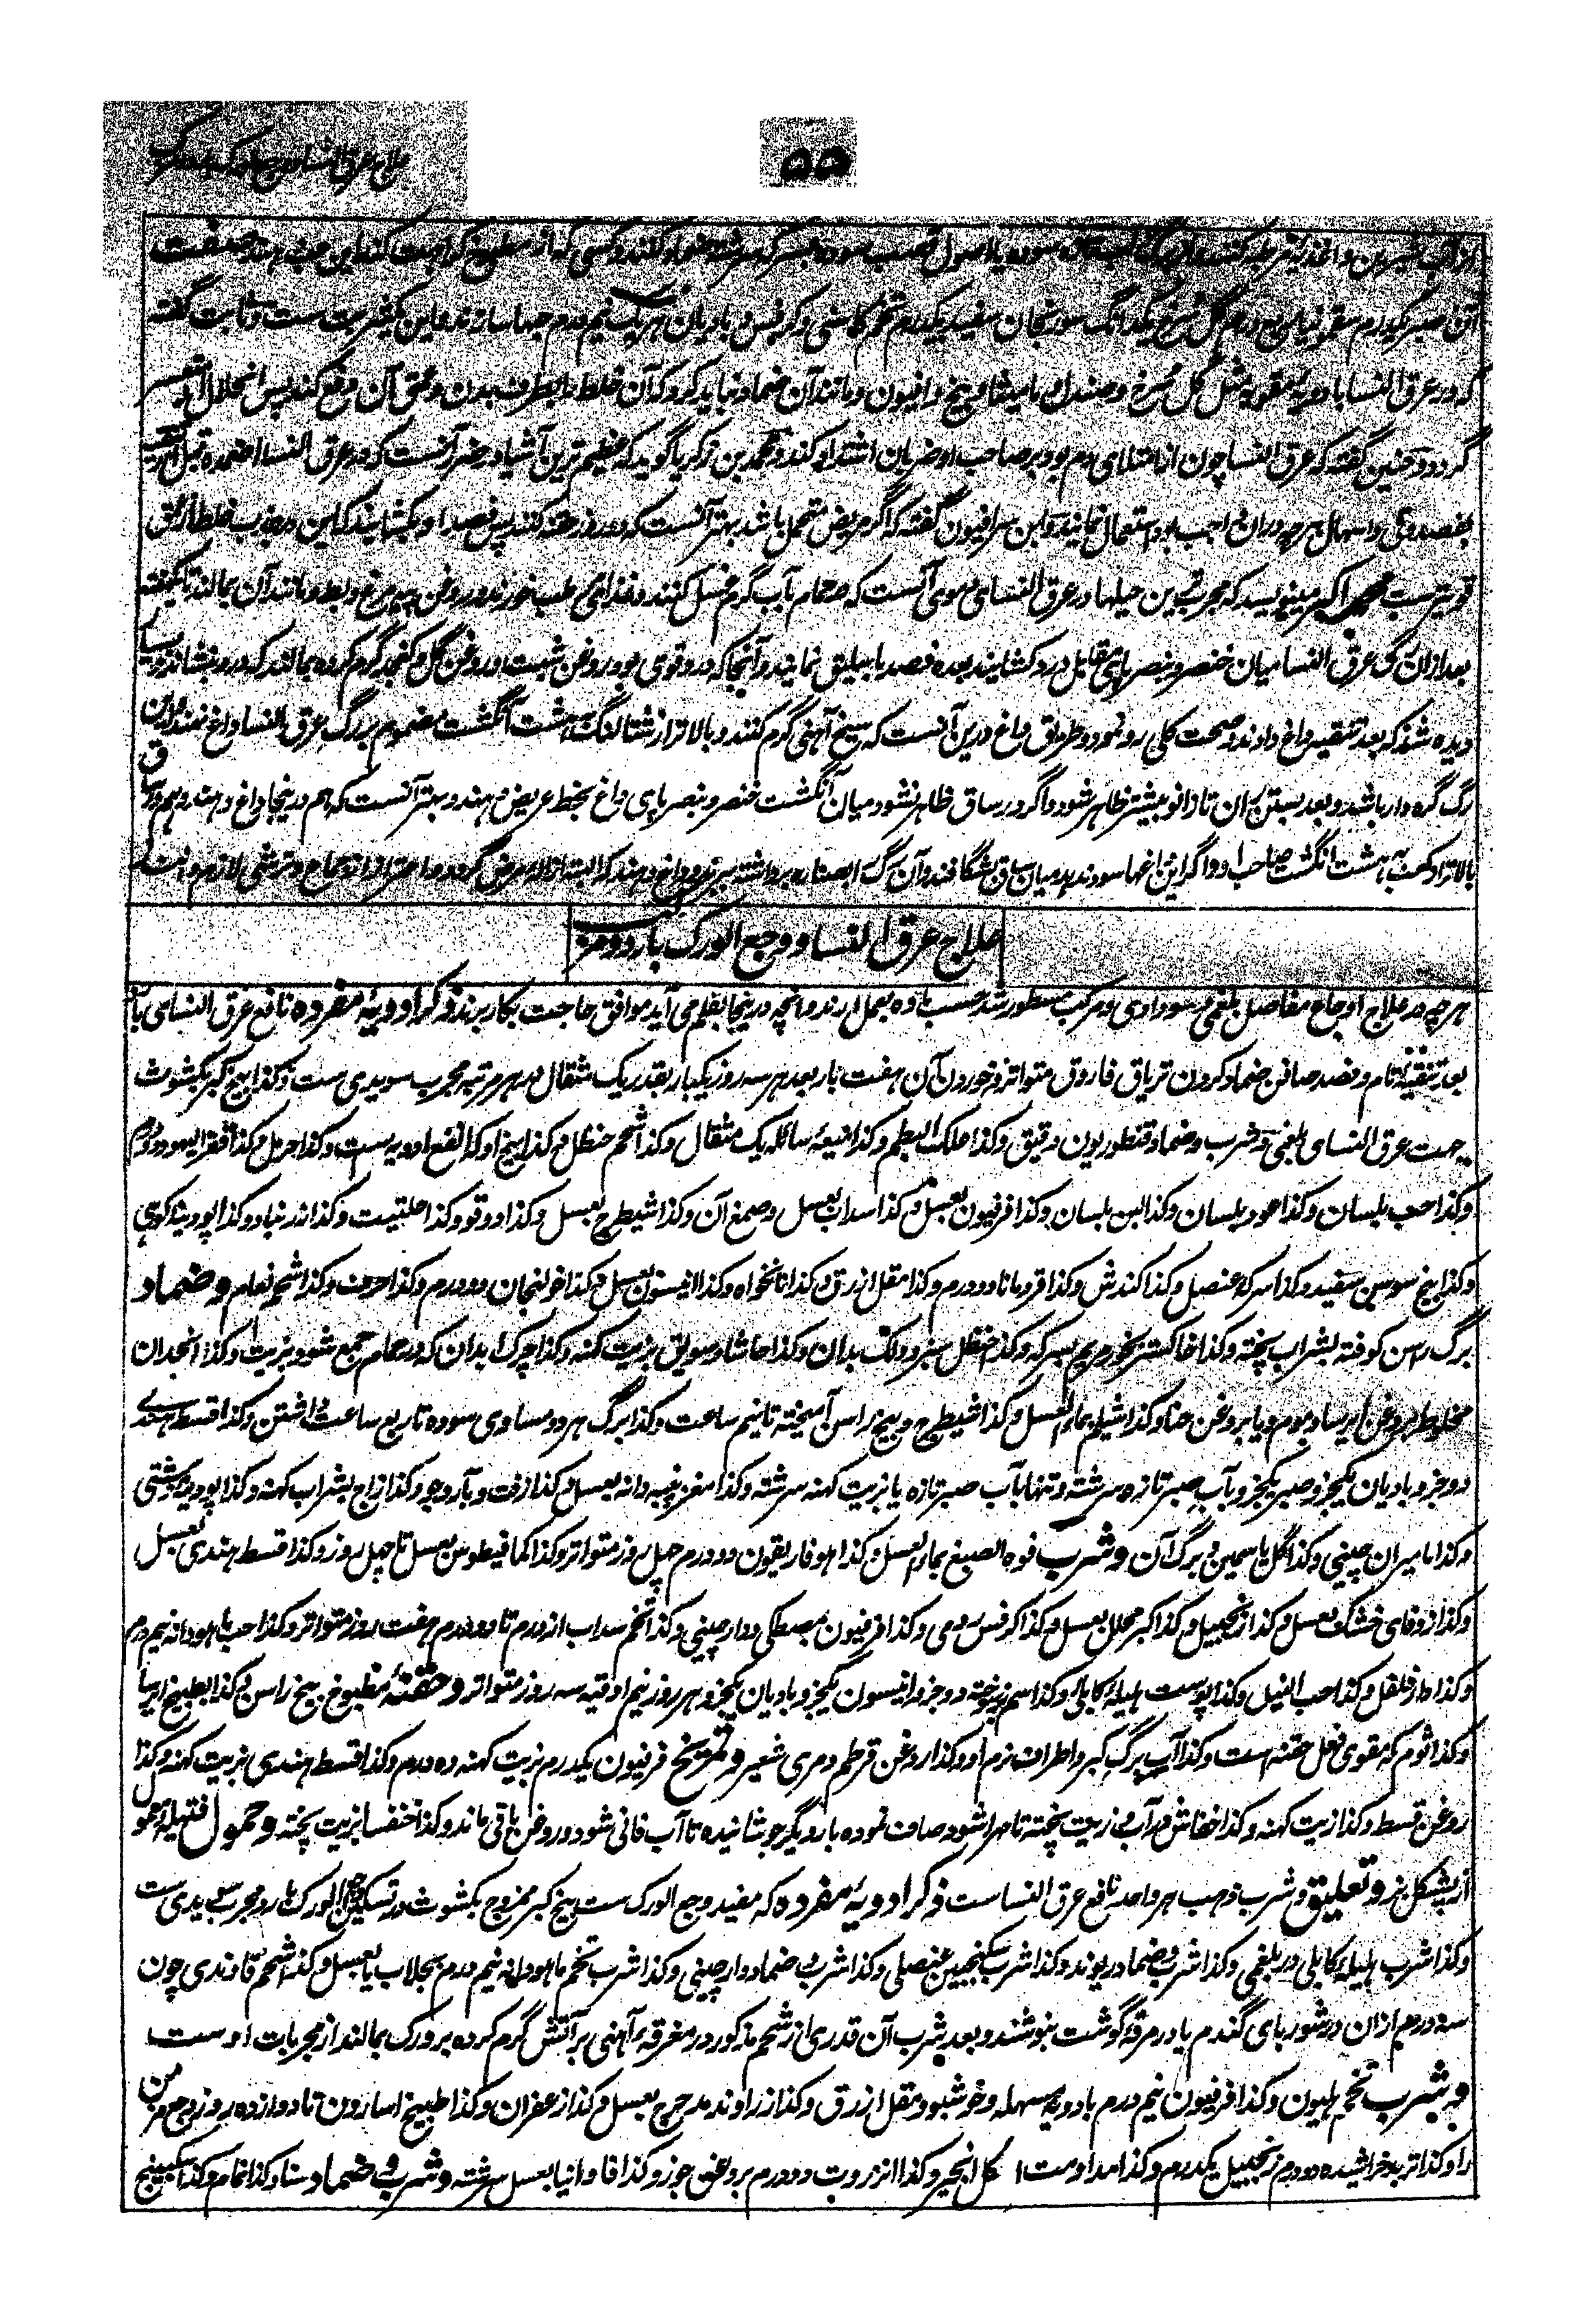 علاج عرق النسا و وجع الورک
۵۵
آن صبر یکدرم سقمونیا گل سرخ یکدانگ سورنجان سفید یکدرم تخم کاسنی و کرفس و بادیان هر یک نیم درم حبها سازند و این یکشربت ست و ثابت گفته
که در عرق النسا بادویه مقویه مثل گل سرخ و صندل و مامیثا و بیخ و افیون و مانند آن ضماد نباید کرد که آن خلط را بطرف بدن و عمق آن دفع کند پس انحلال آن
گردد و حنین گفته که عرق النسا چون از امتلای دم بود بر صاحب او ضربان اشتداد کند و محمد بن زکریا گوید که عظیم ترین اشیا در ضرر آنست که در عرق النسا اضمده قبل از
بفصد و قی و اسهال هرچه در ان واجب بود استعمال نمایند و ابن سرافیون گفته که اگر مریض متحمل باشد بهتر آنست که دو روز حقنه کنند پس فصد او بکشایند که این در جذب خلط از عمق
قویترست محمد اکبر مینویسد که مجرب ترین حیلها در عرق النسای دموی آنست که در حمام بآب گرم غسل کنند و غذای رطب خورند و روغن پیه مرغ و بط و مانند آن بمالند تا یکهفته
بعد ازان رگ عرق النسا میان خنصر و بنصر پای مقابل درد کشایند بعده فصد باسلیق نمایند و آنجا که درد قوی بود روغن شبت و روغن گل و کنجد گرم کرده بمالند که درد بنشاند و بسیار
دیده شد که بعد تنقیه داغ دادند و صحت کلی رو نمود و طریق داغ درین آنست که سیخ آهنی گرم کنند و بالاتر از شتالنگ بهشت انگشت مضموم بر رگ عرق النسا داغ نهند و این
رگ گره دار باشد و بعد بستن ران تا زانو بیشتر ظاهر شود و اگر در ساق ظاهر نشود میان انگشت خنصر و بنصر پای داغ بخط عریض دهند و بهتر آنست که هم درینجا داغ دهند و هم در ساق
بالاتر از کعب بهشت انگشت صاحب او و اگر این داغها سود ندهد میان ساق بشگافند و آن رگ را بصناره برداشته ببرند و داغ دهند که البته ازاله مرض گردد و احتراز از جماع و ترشی لازم دانند
علاج عرق النسا و وجع الورک بارد و مرکب
هرچه در علاج اوجاع مفاصل بلغمی و سوداوی و مرکب مسطور شد حسب ماده بعمل آرند و آنچه درینجا بقلم می آید موافق حاجت بکار برند ذکر ادویهٔ مفرده نافع عرق النسای بارد
بعد تنقیهٔ تام و فصد صافن ضماد کردن تریاق فاروق متواتر و خوردن آن هفت بار بعد هر سه روز یکبار بقدر یک مثقال در هر مرتبه مجرب سویدی ست و کذا بیخ کبر بکشوث
جهت عرق النسای بلغمی و شرب و ضماد قنطوریون دقیق و کذا علک البطم و کذا میعهٔ سائله یک مثقال و کذا شحم حنظل و کذا بیخ او که انفع ادویه ست و کذا حرمل و کذا قفر الیهود دو درم
و کذا حب بلسان و کذا عود بلسان و کذا لبن بلسان و کذا فرفیون بعسل و کذا سداب بعسل و صمغ آن و کذا شیطرج بعسل و کذا دوقو و کذا حلتیت و کذا زرنباد و کذا پودینه کوهی
و کذا بیخ سوسن سفید و کذا سرکه عنصل و کذا کندش و کذا قردمانا دو درم و کذا مقل ازرق و کذا نانخواه و کذا انیسون بعسل و کذا خولنجان دو درم و کذا حرف و کذا شحم نعام و ضماد
برگ راسن کوفته بشراب پخته و کذا خاکستر بخور مریم بسرکه و کذا حنظل سبز و دلک بدان و کذا حاشا و سویق بزیت کهنه و کذا چرک ابدان که در حمام جمع شود بزیت و کذا انجدان
مخلوط بروغن ایرسا و بموم و یا بروغن حنا و کذا شیلم بماء العسل و کذا شیطرج و بیخ راسن آمیخته تا نیم ساعت و کذا برگ هر دو مساوی سوده تا ربع ساعت داشتن و کذا قسط هندی
دو جزو بادیان یکجزو صبر یکجزو بآب صبر تازه سرشته و تنها بآب صبر تازه یا بزیت کهنه سرشته و کذا مغز پنبه دانه بعسل و کذا زفت و بآرد جو و کذا زاج بشراب کهنه و کذا پودینه دشتی
و کذا مامیران چینی و کذا گل یاسمین و برگ آن و شرب فوه الصبغ بماء العسل و کذا هوفاریقون دو درم چهل روز متواتر و کذا کمافیطوس بعسل تا چهل روز و کذا قسط هندی بعسل
و کذا زوفای خشک بعسل و کذا زنجبیل و کذا کبر مخلل بعسل و کذا کرفس رومی و کذا فرفیون بمصطکی و دارچینی و کذا تخم سداب از درم تا دو درم هفت روز متواتر و کذا حب ماهودانه نیم درم
و کذا دارفلفل و کذا حب النیل و کذا پوست هلیله کابلی و کذا سورنجان دو جزو انیسون یکجزو بادیان یکجزو هر روز نیم اوقیه سه روز متواتر و حقنهٔ مطبوخ بیخ راسن و کذا بطبیخ ایرسا
و کذا ثوم که مقوی فعل حقنه است و کذا آب برگ کبر و اطراف نرم او و کذا روغن قرطم و مری شعیر و تمریخ فرفیون یکدرم بزیت کهنه ده درم و کذا قسط هندی بزیت کهنه و کذا
روغن قسط و کذا زیت کهنه و کذا خفاش در آب و زیت پخته تا مهرا شود صاف نموده بار دیگر جوشانیده تا آب فانی شود و روغن باقی ماند و کذا خنفسا بزیت پخته و حمول فتیله معمول
از پشکل بز و تعلیق و شرب ذهب هر واحد نافع عرق النساست ذکر ادویهٔ مفرده که مفید وجع الورک ست بیخ کبر ممزوج بکشوث در تسکین وجع الورک بارد مجرب سویدی ست
و کذا شرب هلیلهٔ کابلی در بلغمی و کذا شرب و ضماد ریوند و کذا شرب سکنجبین عنصلی و کذا شرب و ضماد دارچینی و کذا شرب تخم ماهودانه نیم درم بجلاب یا بعسل و کذا شحم قاوندی چون
سه درم ازان در شوربای گندم یا در مرقهٔ گوشت بنوشند و بعد شرب آن قدری از شحم مذکور در مغرفهٔ آهنی بر آتش گرم کرده بر ورک بمالند از مجربات اوست
و شرب تخم هلیون و کذا فرفیون نیم درم بادویه مسهله و خوشبو و مقل ازرق و کذا زراوند مدحرج بعسل و کذا زعفران و کذا طبیخ اسارون تا دوازده روز وجع مزمن
را و کذا تربد خراشیده دو درم زنجبیل یکدرم و کذا مداومت اکل انجیر و کذا انزروت دو درم بروغن جوز و کذا فاوانیا بعسل سرشته و شرب و ضماد سنا و کذا نمام و کذا سکبینج